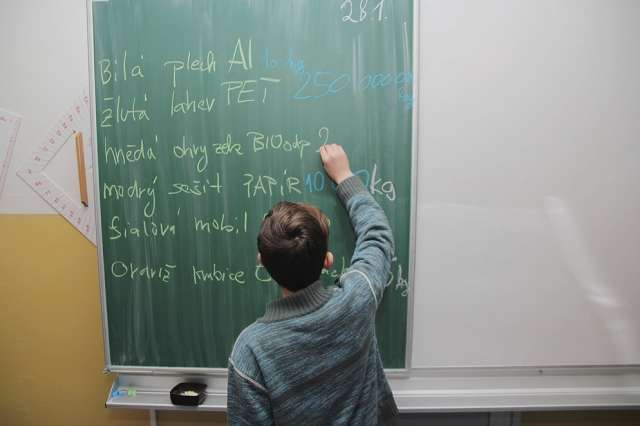 28.1.
Bílá plech Al 10 kg
žlutá lahev PET 250 000 000 kg
hnědá ohryzek BIOodp ?
modrý sešit PAPÍR kg
fialová mobil
krabice kg